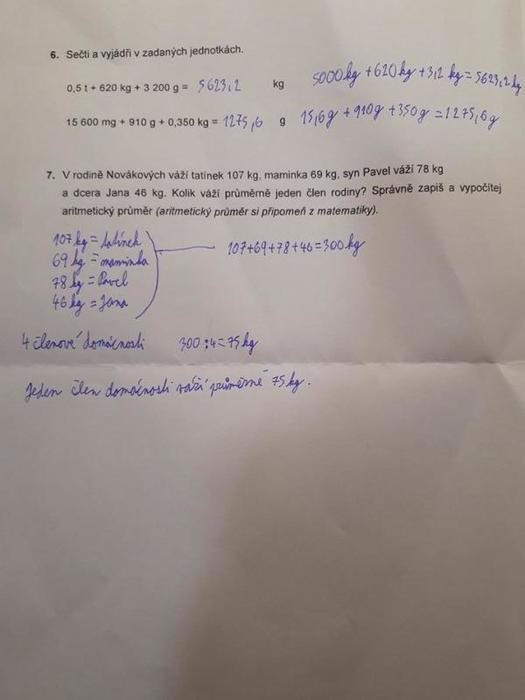 6. Sečti a vyjádři v zadaných jednotkách.
0,5 t + 620 kg + 3 200 g = 5623,2 kg 5000kg + 620kg + 3,2 kg = 5623,2 kg
15 600 mg + 910 g + 0,350 kg = 1275,6 g 15,6g + 910g + 350g = 1275,6g
7. V rodině Novákových váží tatínek 107 kg, maminka 69 kg, syn Pavel váží 78 kg
a dcera Jana 46 kg. Kolik váží průměrně jeden člen rodiny? Správně zapiš a vypočítej
aritmetický průměr (aritmetický průměr si připomeň z matematiky).
107 kg = tatínek
69 kg = maminka
78 kg = Pavel
46 kg = Jana
107+69+78+46=300kg
4 členové domácnosti 300:4=75kg
Jeden člen domácnosti váží průměrně 75kg.